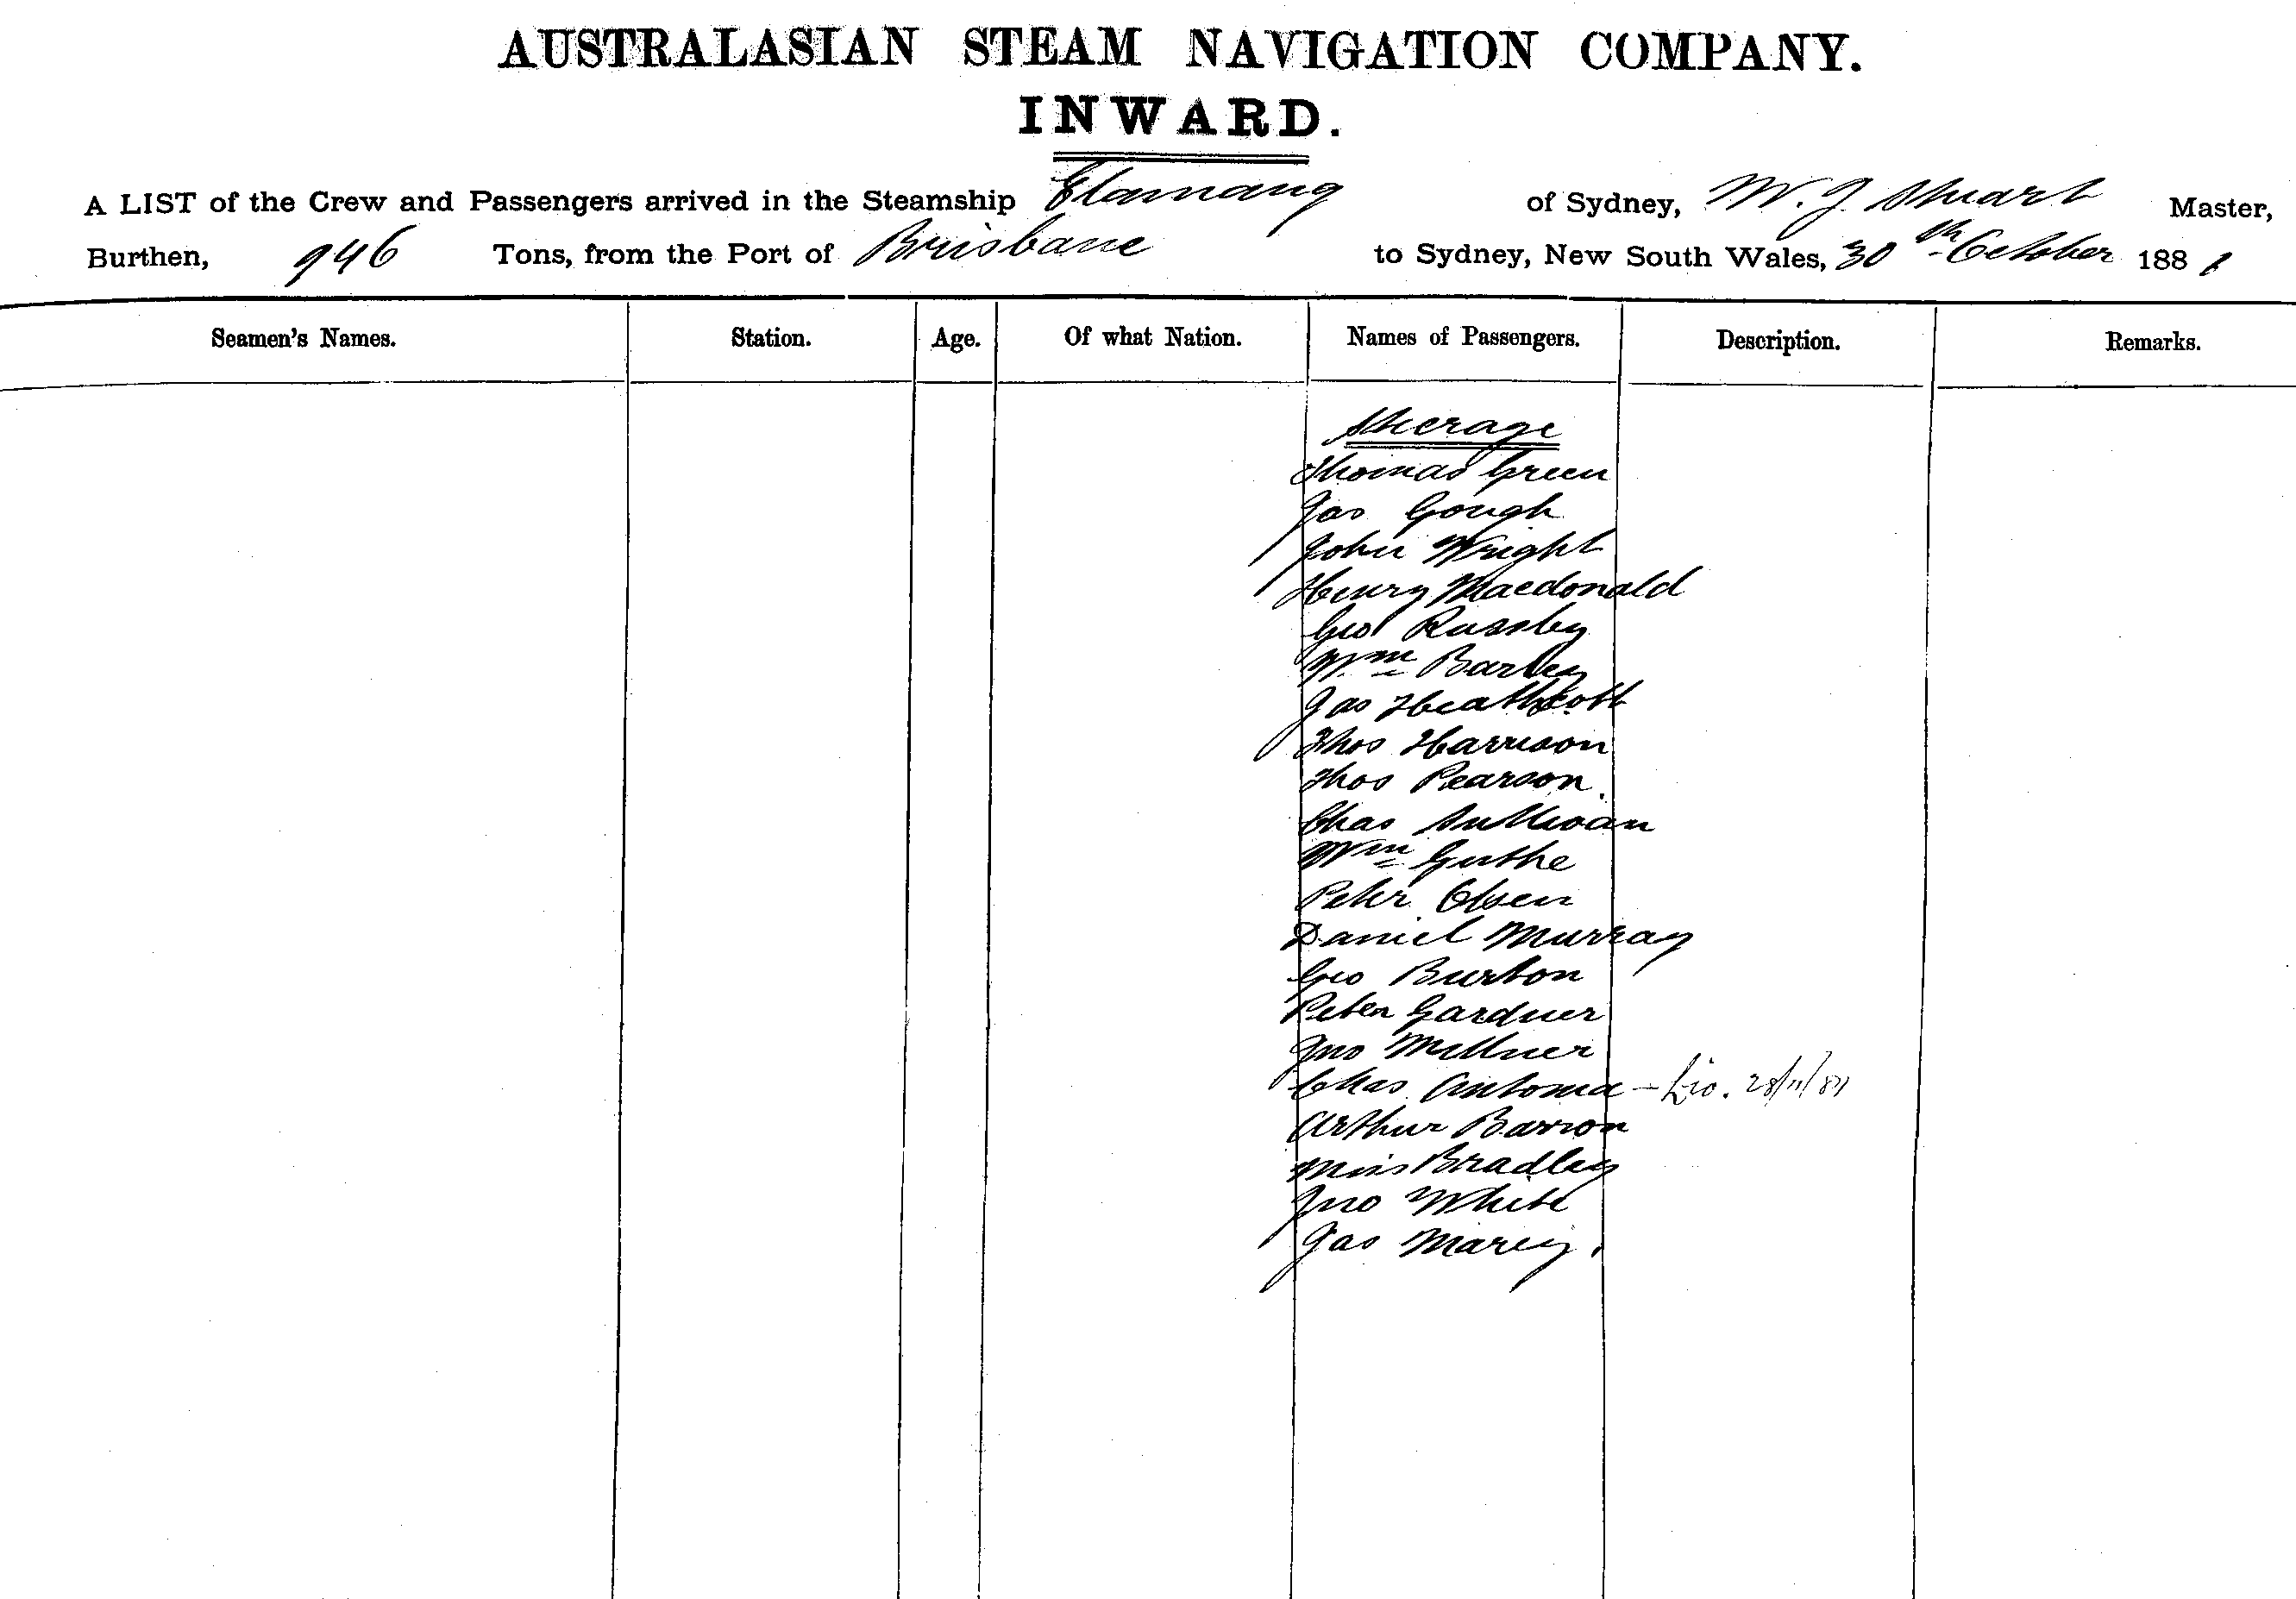 AUSTRALASIAN STEAM NAVIGATION COMPANY.
INWARD.
A LIST of the Crew and Passengers arrived in the Steamship Elamang of Sydney, W. J. Stuart Master,
Burthen, 946 Tons, from the Port of Brisbane to Sydney, New South Wales, 30th October 1881
Seamen's Names. Station. Age. Of what Nation. Names of Passengers. Description. Remarks.
Steerage
Thomas Green
Jas Gough
John Wright
Henry Macdonald
Geo Russby
Wm Barley
Jas Heathcott
Thos Harrison
Thos Pearson.
Chas Sullivan
Wm Guthe
Peter Olsen
Daniel Murray
Geo Burton
Peter Gardner
Jno Millner
Chas Antonia - 28/11/81
Arthur Barron
Miss Bradley
Jno White
Jas Marcy.